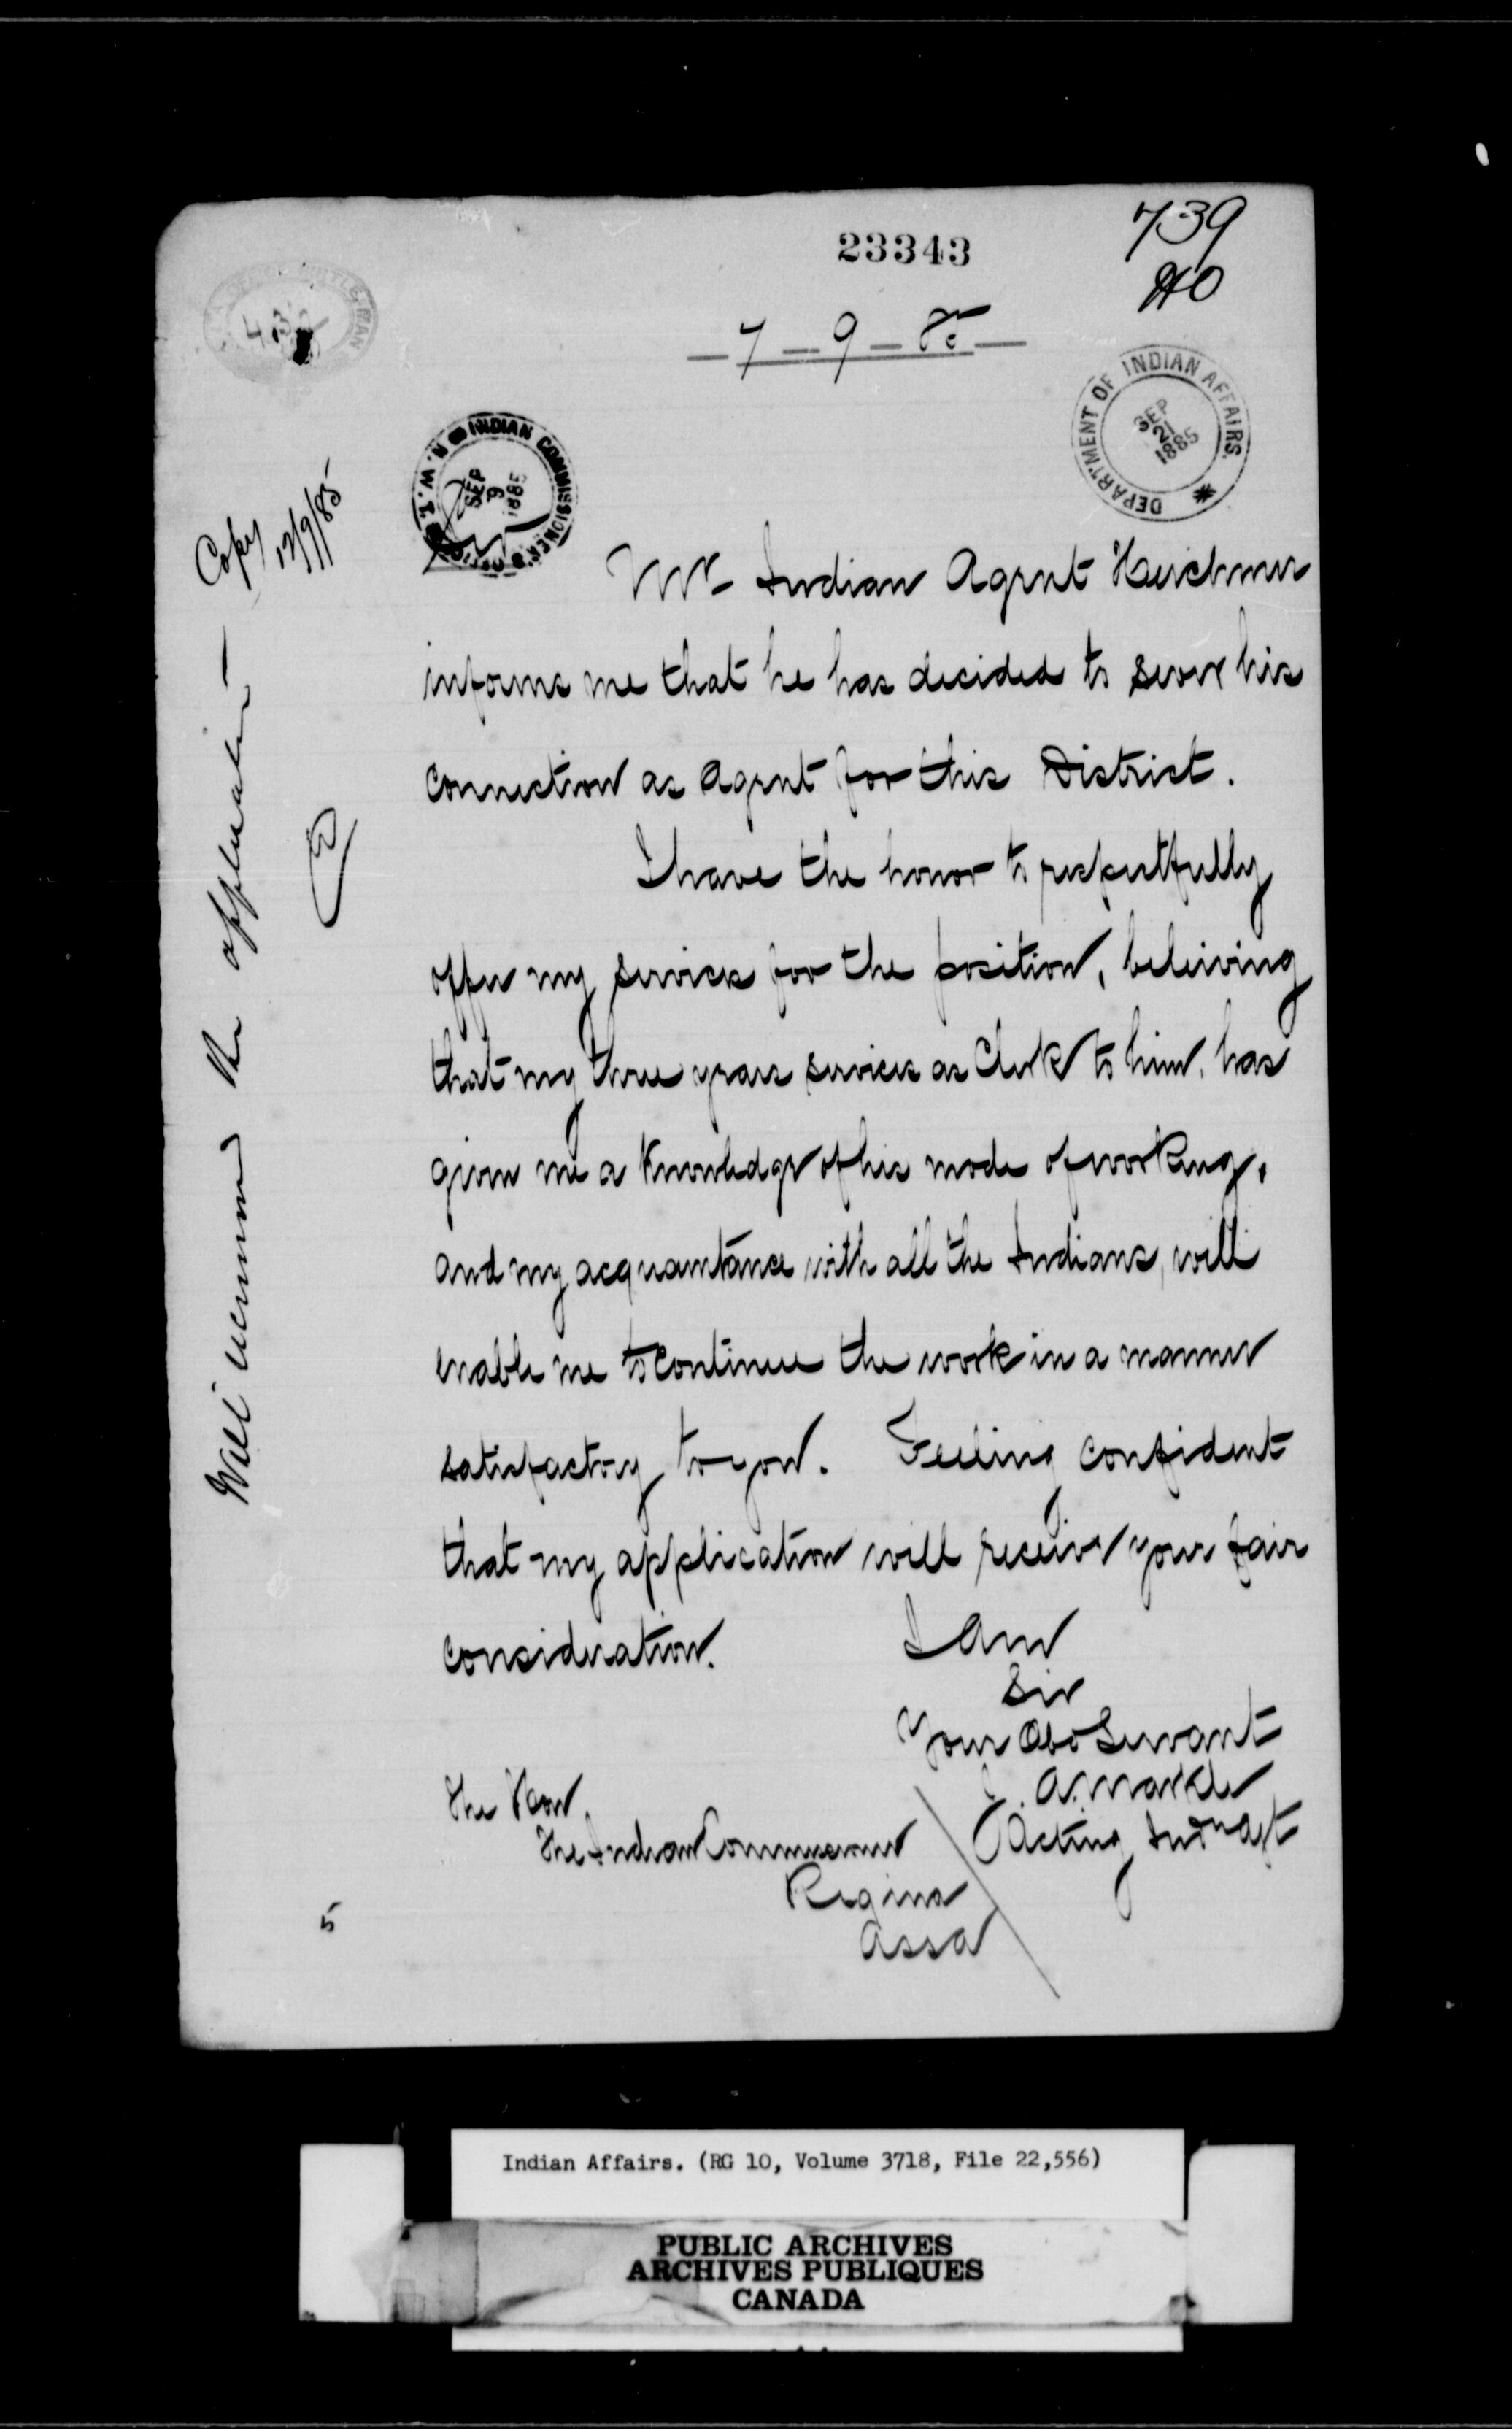 23343
739
HO
7-9-85
INDIAN COMMISSIONER'S OFFICE N.W.T.
SEP
9
1885
DEPARTMENT OF INDIAN AFFAIRS.
SEP
21
1885
Copy
12/9/85
Mr Indian Agent Herchmer
informs me that he has decided to sever his
connection as Agent for this District.
I have the honor to respectfully
offer my services for the position, beleiving
that my three years services as Clerk to him, has
given me a Knowledge of his mode of working,
and my acquaintance with all the Indians, will
enable me to continue the work in a manner
satisfactory to you. Feeling confident
that my application will receive your fair
consideration. I am
Sir
Your Obt Servant
J. A. Markle
Acting Indn Agt
The Hon
The Indian Commissioner
Regina
Assa
Will recommend the application
5
Indian Affairs. (RG 10, Volume 3718, File 22,556)
PUBLIC ARCHIVES
ARCHIVES PUBLIQUES
CANADA